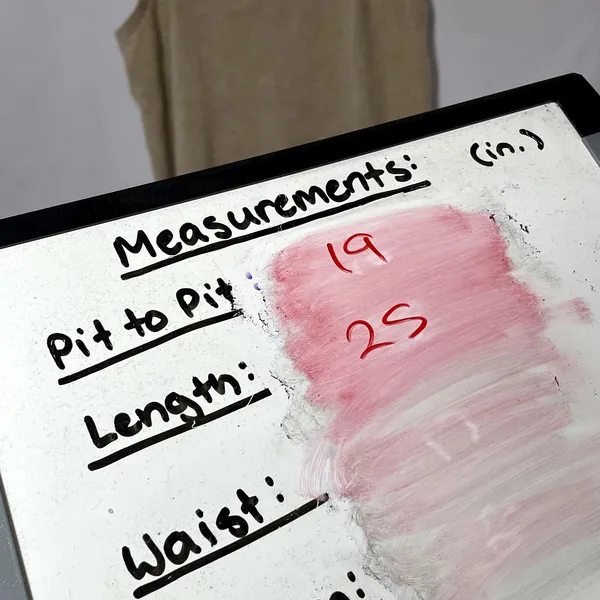 Measurements: (in.)
Pit to Pit: 19
Length: 25
Waist: